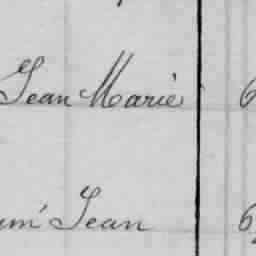 Jean Marie 6
Jean 6